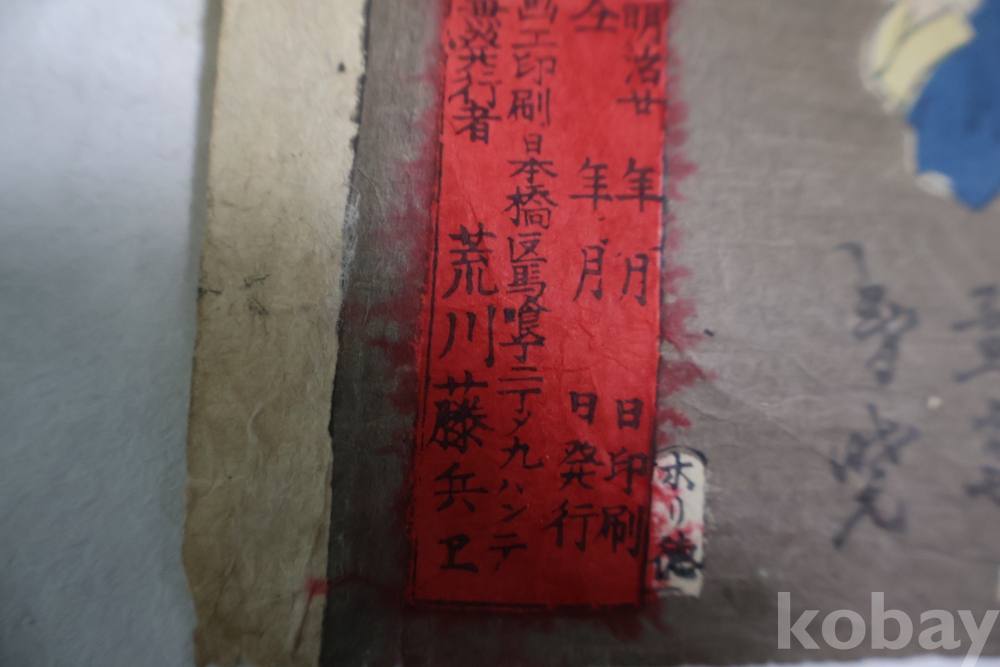 明治廿 年 月 日印刷
仝 年 月 日発行
画工印刷 日本橋区馬喰丁二丁メ九ハンチ
兼発行者 荒川藤兵ヱ
ホリ徳
kobay